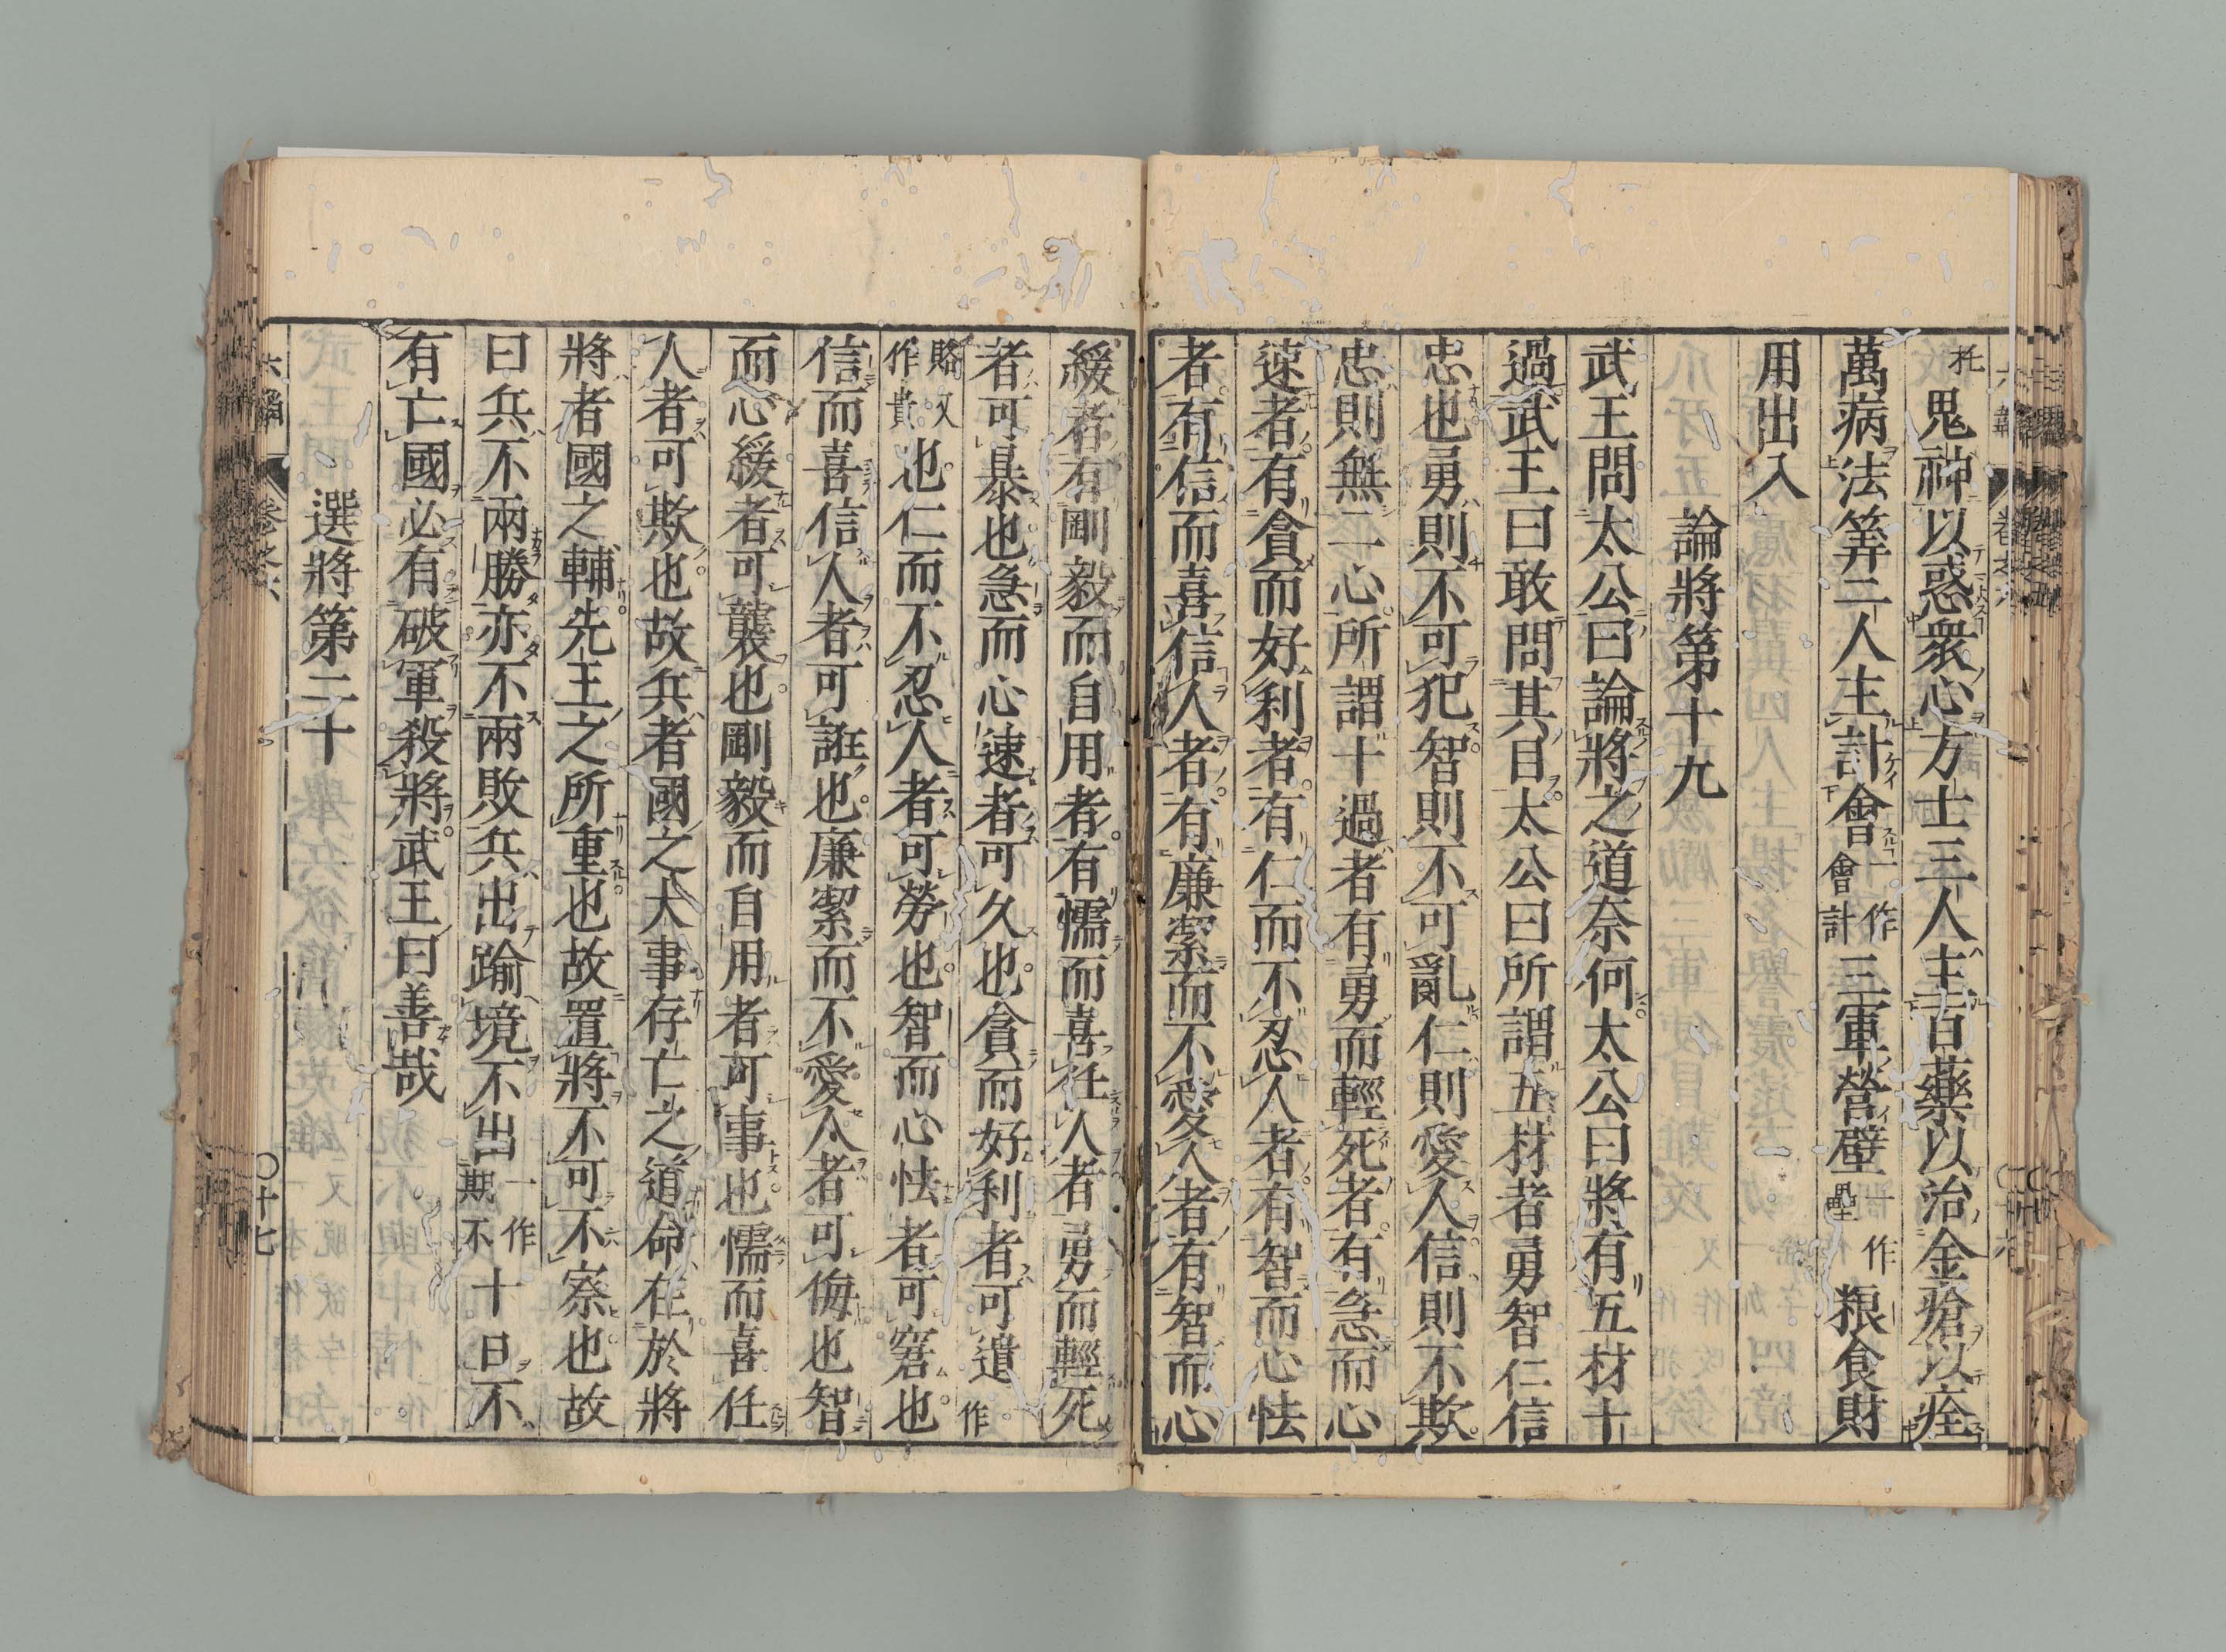 托鬼神以惑衆心方士三人主百藥以治金瘡以痊
萬病法筭二人主計會一作會計三軍營壁一作壘粮食財
用出入
論將第十九
武王問太公曰論將之道奈何太公曰將有五材十
過武王曰敢問其目太公曰所謂五材者勇智仁信
忠也勇則不可犯智則不可亂仁則愛人信則不欺
忠則無二心所謂十過者有勇而輕死者有急而心
速者有貪而好利者有仁而不忍人者有智而心怯
者有信而喜信人者有廉潔而不愛人者有智而心
緩者有剛毅而自用者有懦而喜任人者勇而輕死
者可暴也急而心速者可久也貪而好利者可遺作
賂又作貴也仁而不忍人者可勞也智而心怯者可窘也
信而喜信人者可誑也廉潔而不愛人者可侮也智
而心緩者可襲也剛毅而自用者可事也懦而喜任
人者可欺也故兵者國之大事存亡之道命在於將
將者國之輔先王之所重也故置將不可不察也故
曰兵不兩勝亦不兩敗兵出踰境不出一作期不十日不
有亡國必有破軍殺將武王曰善哉
選將第二十
六韜 卷之六 〇十七